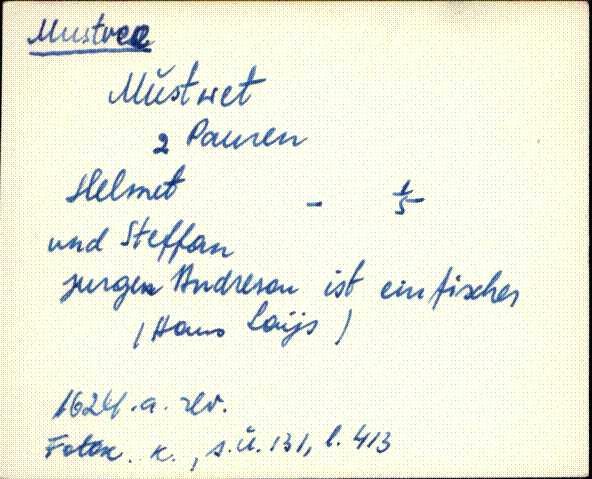 Mustvee
Mustwet
2 Pauren
Helmet - 1/5
und Steffan
jurgen Andreson ist ein fischer
(Hans Loijs)
1624. a. rev.
Fotok. k., s.ü. 131, l. 413